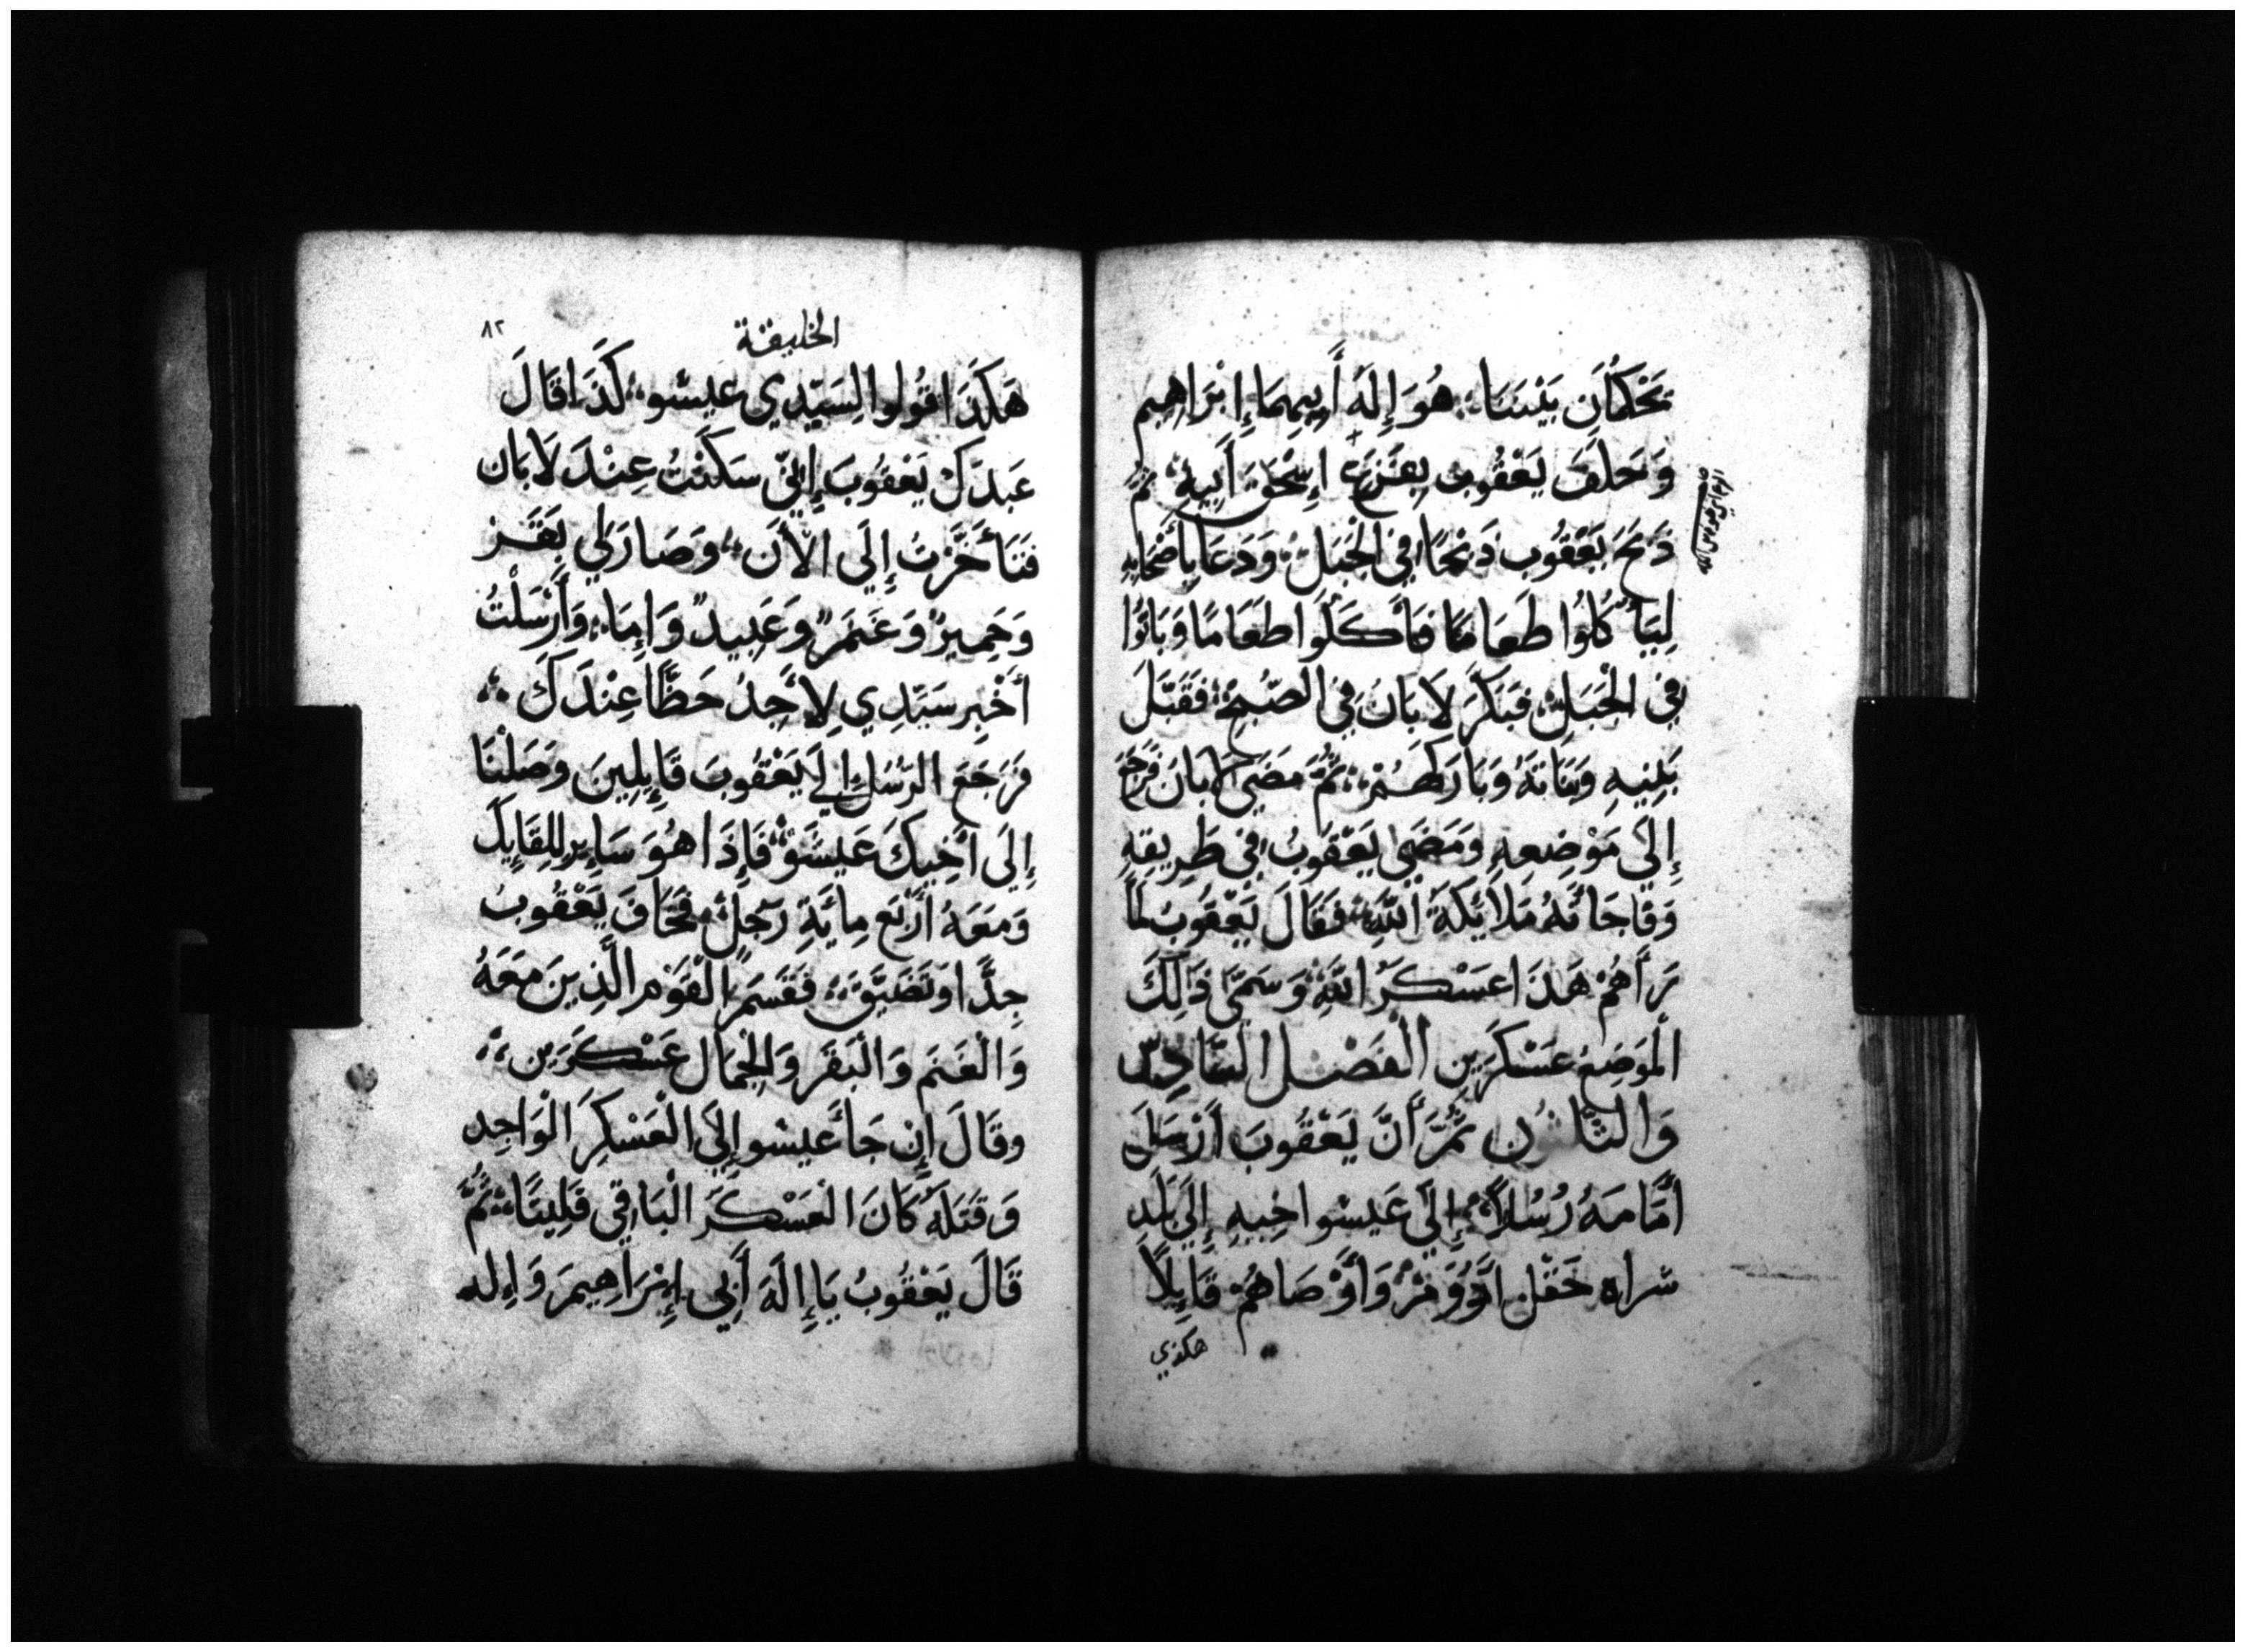 يَحْكُمَانِ بَيْنَنَا هُوَ إِلَهَ أَبِيهِمَا إِبْرَاهِيم
وَحَلَفَ يَعْقُوب بِفَزَع إِسْحَقَ أَبِيهِ ثُمَّ
ذَبَحَ يَعْقُوب ذَبْحًا فِي الْجَبَلِ وَدَعَا بِأَصْحَابِهِ
لِيَأْكُلُوا طَعَامًا فَأَكَلُوا طَعَامًا وَبَاتُوا
فِي الْجَبَلِ فَبَكَّرَ لَابَانُ فِي الصُّبْحِ فَقَبَّلَ
بَنِيهِ وَبَنَاتَهُ وَبَارَكَهُمْ ثُمَّ مَضَى لَابَانَ فَرَجَعَ
إِلَى مَوْضِعِهِ وَمَضَى يَعْقُوبُ فِي طَرِيقِهِ
وَفَاجَاتَهُ مَلَائِكَةَ اللَّهِ فَقَالَ يَعْقُوبُ لَمَّا
رَأَهُمْ هَذَا عَسْكَرُ اللَّهِ وَسَمَّى ذَلِكَ
الْمَوْضِعُ عَسْكَرَيْنِ الْفَصْلُ السَّادِسُ
وَالثَّلَاثُونَ ثُمَّ أَنَّ يَعْقُوبَ أَرْسَلَ
أَمَامَهُ رُسُلاً إِلَى عَيْسُو اخِيهِ إِلَى بَلَدِ
سراه حَقْل وَأَوْصَاهُمْ قَايِلاً
هكذي
الخليقة
٨٢
هَكَذَا قُولُوا لِسَيِّدِي عَيْسُو كَذَا قَالَ
عَبدَكَ يَعْقُوبَ إِنِّي سَكَنْتُ عِنْدَ لَابَان
فَتَأَخَّرْتُ إِلَى الْأَنَ وَصَارَ لِي بَقَر
وَحَمِيرٌ وَغَنَمٌ وَعَبِيدٌ وَإِمَا وَأَرْسَلْتُ
أُخْبِر سَيِّدِي لِأَجِدُ حَظًّا عِنْدَكَ
فَرَجَعَ الرُّسُلُ إِلَى يَعْقُوبَ قَايِلِينَ وَصَلْنَا
إِلَى أَخِيكَ عَيْسُو فَإِذَا هُوَ سَايِر لِلِقَايِكَ
وَمَعَهُ أَرْبَع مِايَةِ رَجُلٍ فَخَافَ يَعْقُوبُ
جِدًّا وَتَضَيَّقَ فَقَسَمَ الْقَوْمِ الَّذِينَ مَعَهُ
وَالْغَنَم وَالْبَقَر وَالْجِمَالَ عَسْكَرَيْنِ
وَقَالَ إِنْ جَا عَيْسُو إِلَى الْعَسْكَرِ الْوَاحِد
وَقَتَلَهُ كَانَ الْعَسْكَرُ الْبَاقِي فَلِيتًا ثُمَّ
قَالَ يَعْقُوبُ يَا إِلَهَ أَبِي إِبْرَاهِيمَ وَإِلَه